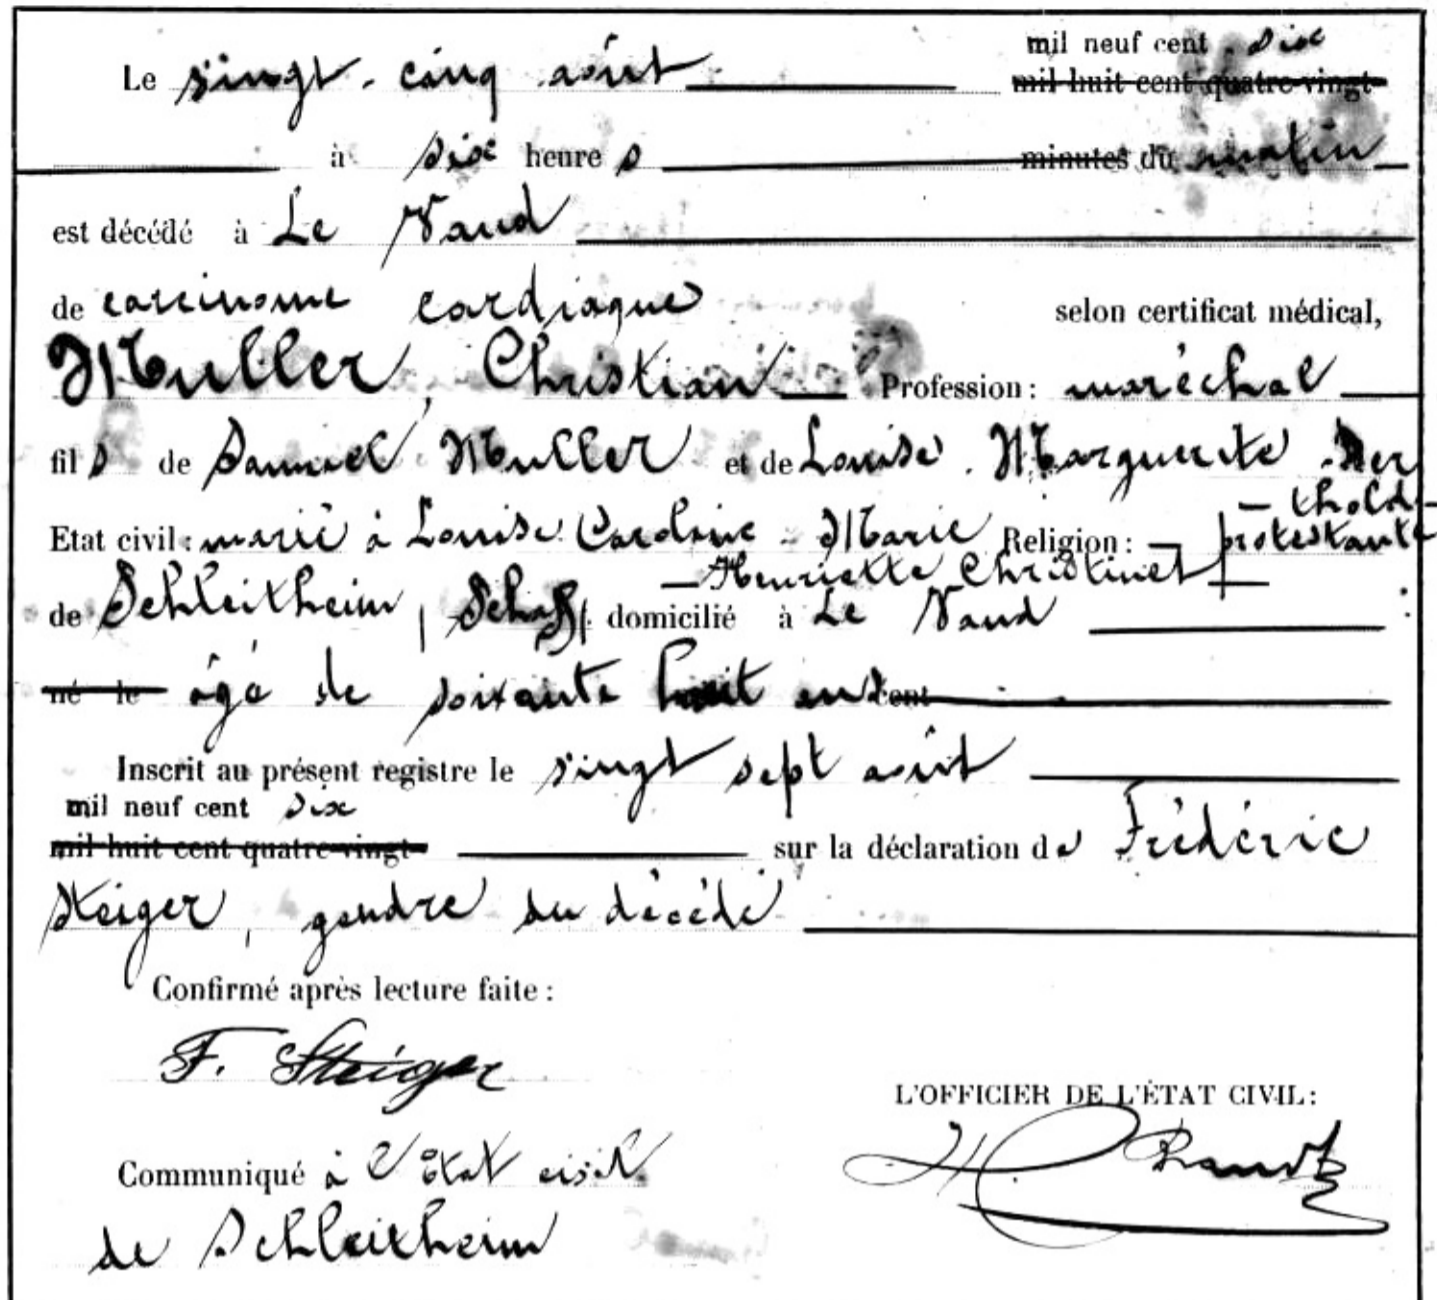 mil neuf cent dix
Le vingt-cinq août mil huit cent quatre-vingt-
à dix heures minutes du matin
est décédé à Le Vaud
de carcinome cardiaque selon certificat médical,
Muller, Christian Profession: maréchal
fils de Samuel Muller et de Louise Marguerite Ber
-thold-
Etat civil: marié à Louise Caroline-Marie Religion: protestante
-Henriette Christinet
de Schleitheim, Schaff. domicilié à Le Vaud
né le âgé de soixante huit ans cent
Inscrit au présent registre le vingt sept août
mil neuf cent dix
mil huit cent quatre-vingt- sur la déclaration de Frédéric
Steiger, gendre du décédé
Confirmé après lecture faite:
F. Steiger
L'OFFICIER DE L'ÉTAT CIVIL:
Communiqué à l'état civil
de Schleitheim